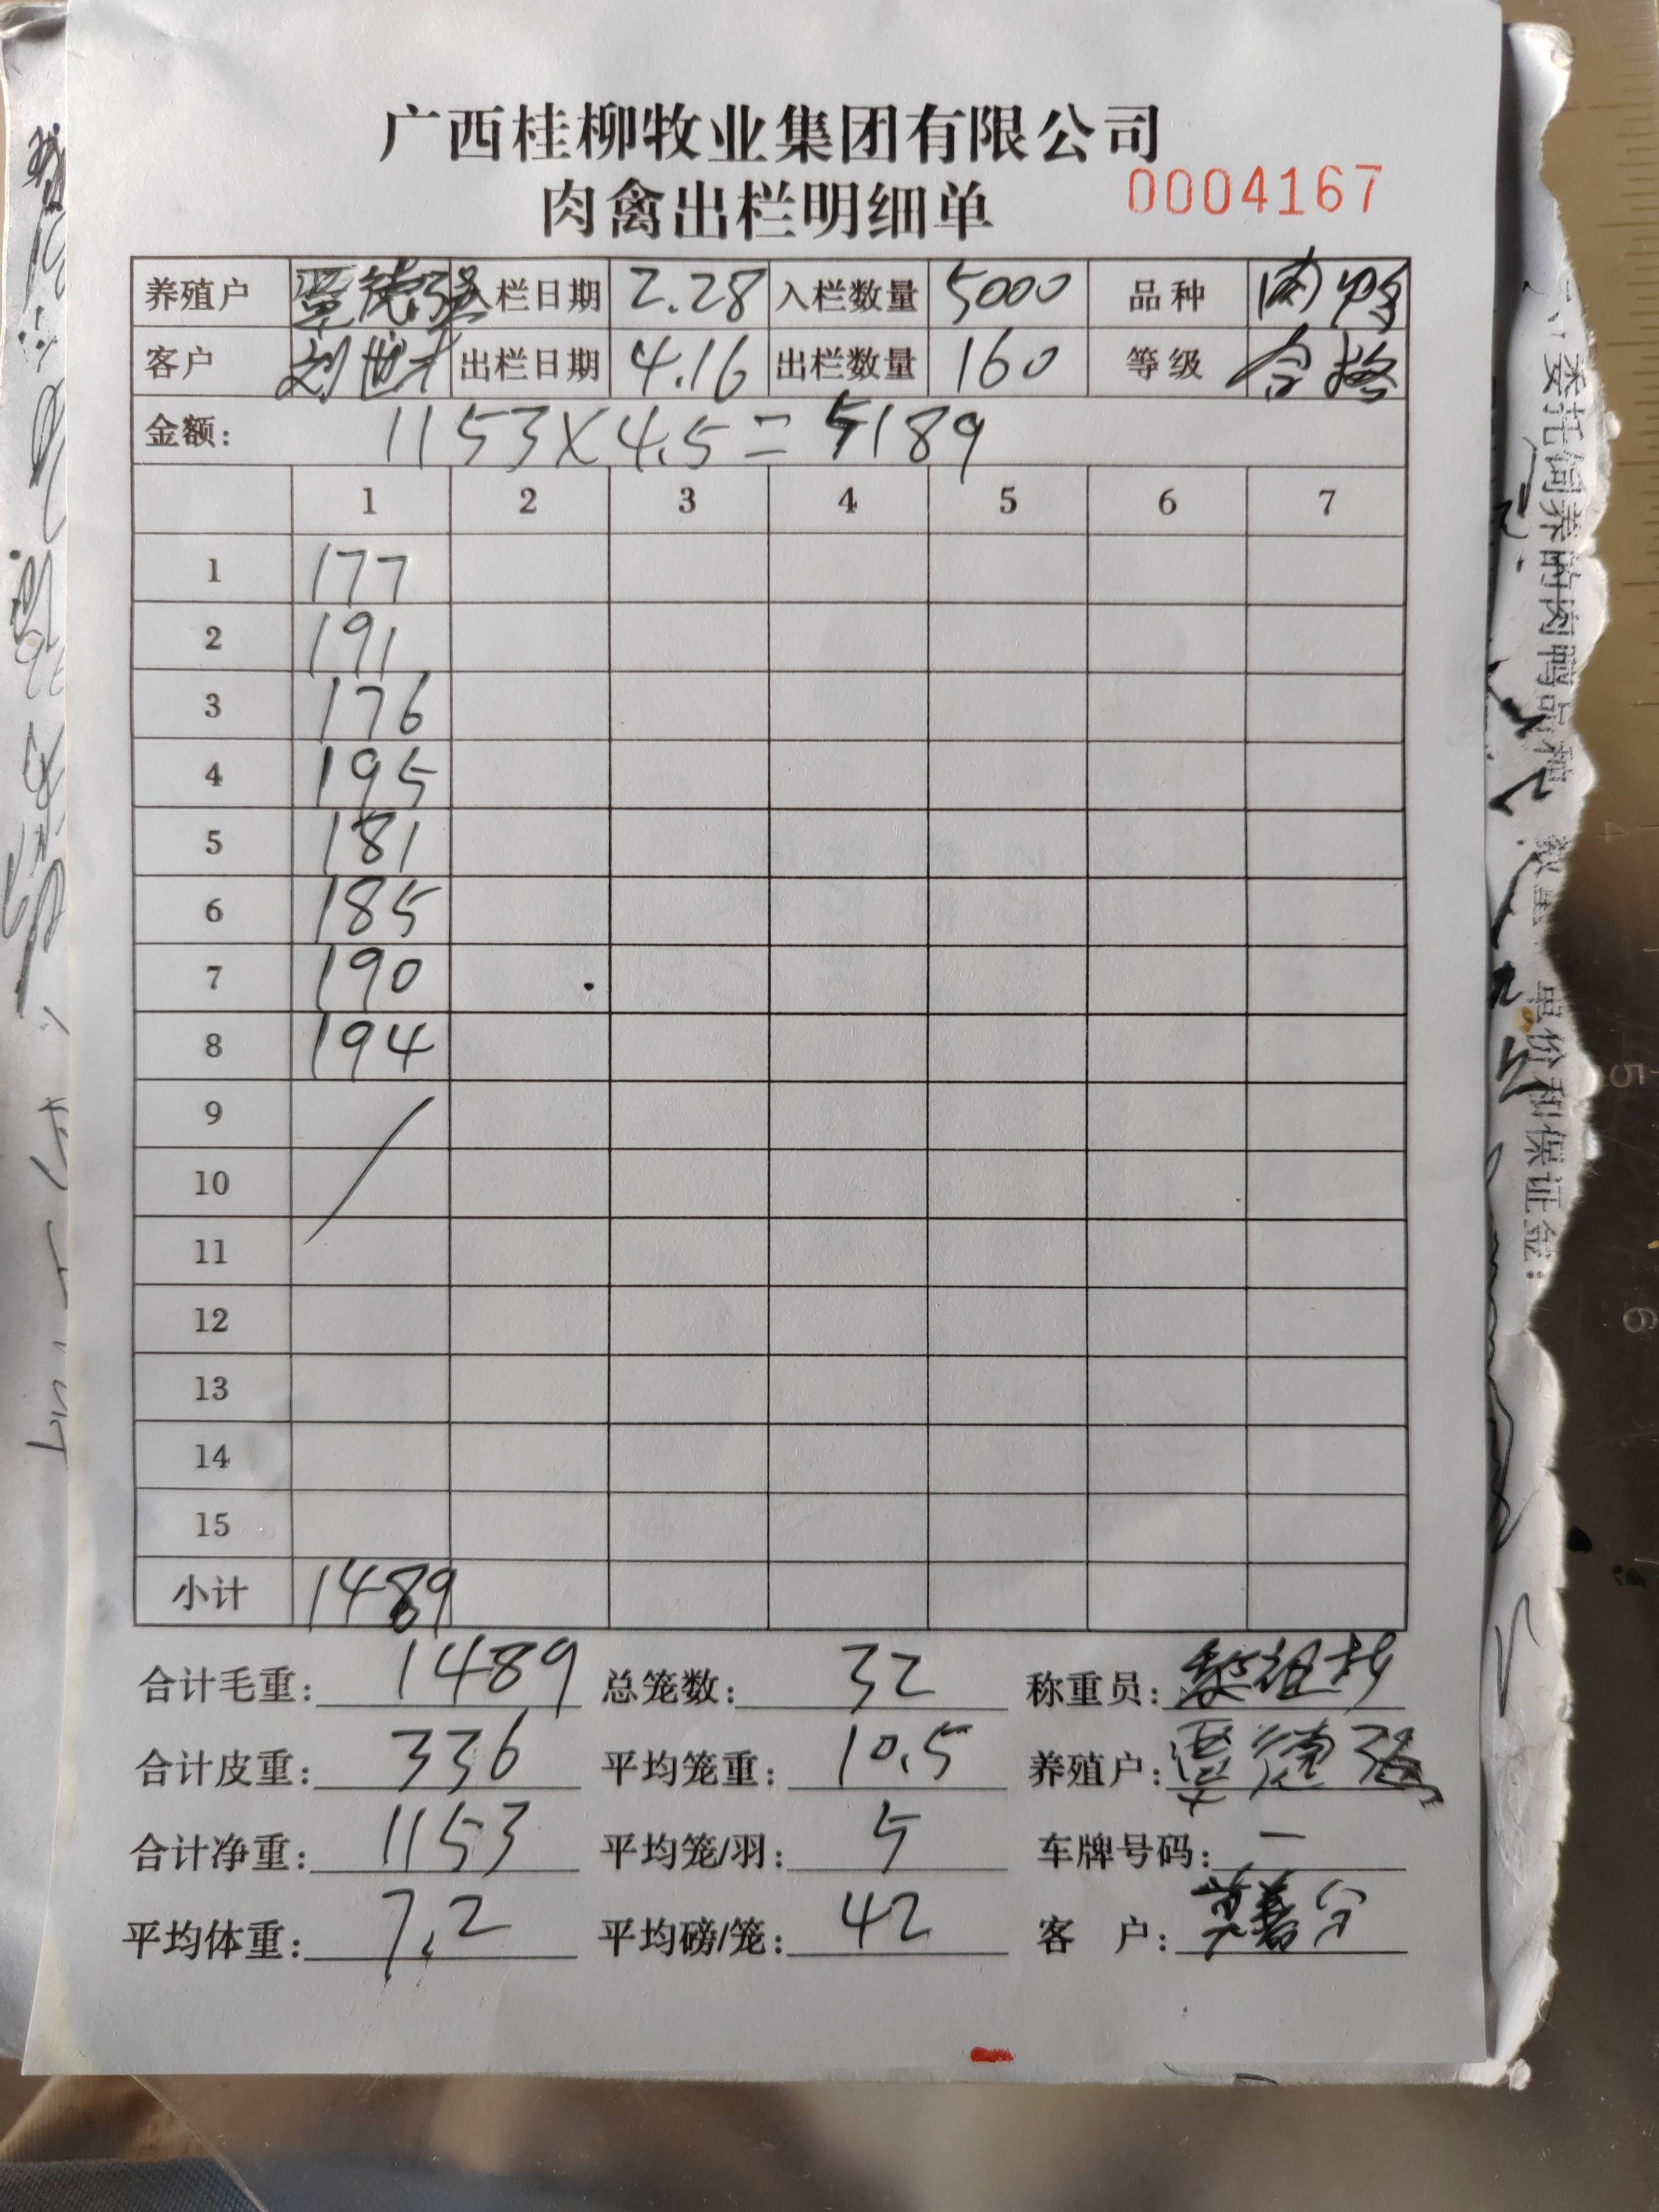 广西桂柳牧业集团有限公司
肉禽出栏明细单 0004167
养殖户 覃德强 入栏日期 2.28 入栏数量 5000 品种 肉鸭
客户 刘世才 出栏日期 4.16 出栏数量 160 等级 合格
金额: 1153×4.5=5189
1 2 3 4 5 6 7
1 177
2 191
3 176
4 195
5 181
6 185
7 190
8 194
9
10
11
12
13
14
15
小计 1489
合计毛重: 1489 总笼数: 32 称重员:
合计皮重: 336 平均笼重: 10.5 养殖户: 覃德强
合计净重: 1153 平均笼/羽: 5 车牌号码: 一
平均体重: 7.2 平均磅/笼: 42 客 户:
委托饲养的肉鸭品种 数量 单价和保证金: